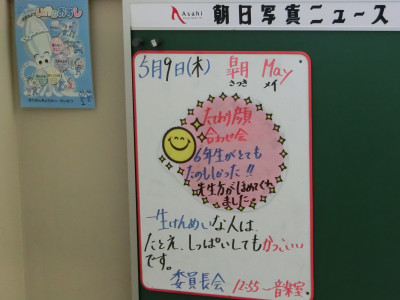 Asahi 朝日写真ニュース
5月9日(木) 皐月 May
さつき メイ
たてわり顔
合わせ会
6年生がとても
たのしかった!!
先生方がほめてくれ
ました。
一生けんめいな人は、
たとえ、しっぱいしてもかっこいい
です。
委員長会 12:55〜音楽室